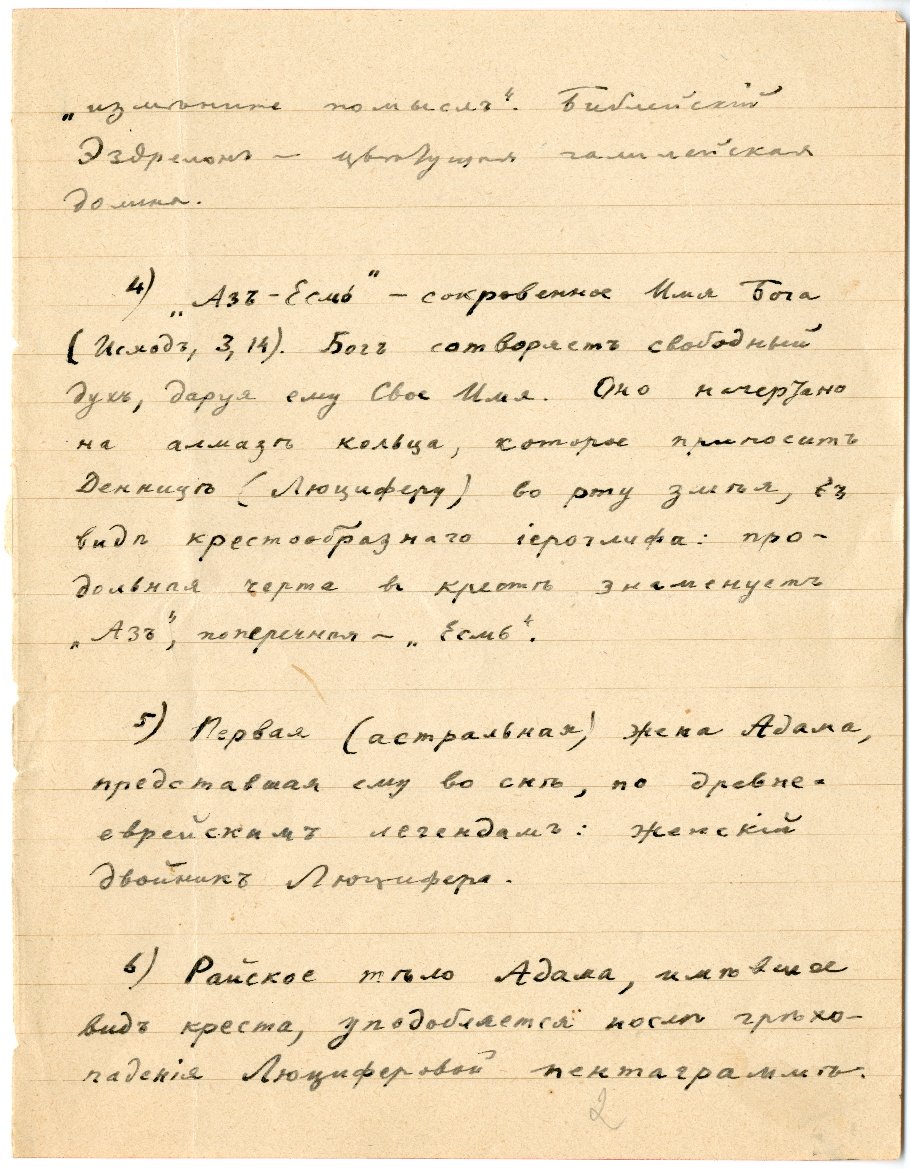 „измѣните помыслъ“. Библейскій
Эздрелонъ – цвѣтущая галилейская
долина.
4) „Азъ-Есмь“ – сокровенное Имя Бога
(Исходъ, 3, 14). Богъ сотворяетъ свободный
духъ, даруя ему Свое Имя. Оно начертано
на алмазѣ кольца, которое приноситъ
Денницѣ (Люциферу) во рту змѣя, въ
видѣ крестообразнаго іероглифа: про-
дольная черта въ крестѣ знаменуетъ
„Азъ“, поперечная – „Есмь“.
5) Первая (астральная) жена Адама,
представшая ему во снѣ, по древне-
еврейскимъ легендамъ: женскій
двойникъ Люцифера.
6) Райское тѣло Адама, имѣвшее
видъ креста, уподобляется послѣ грѣхо-
паденія Люциферовой пентаграммѣ.
2